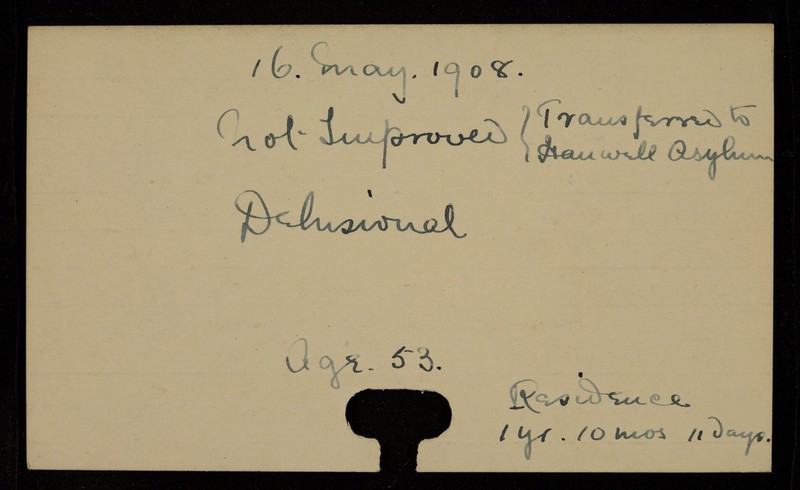 16. May. 1908.
Not Improved { Transferred to
Hanwell Asylum
Delusional
Age. 53.
Residence
1 yr. 10 mos 11 days.